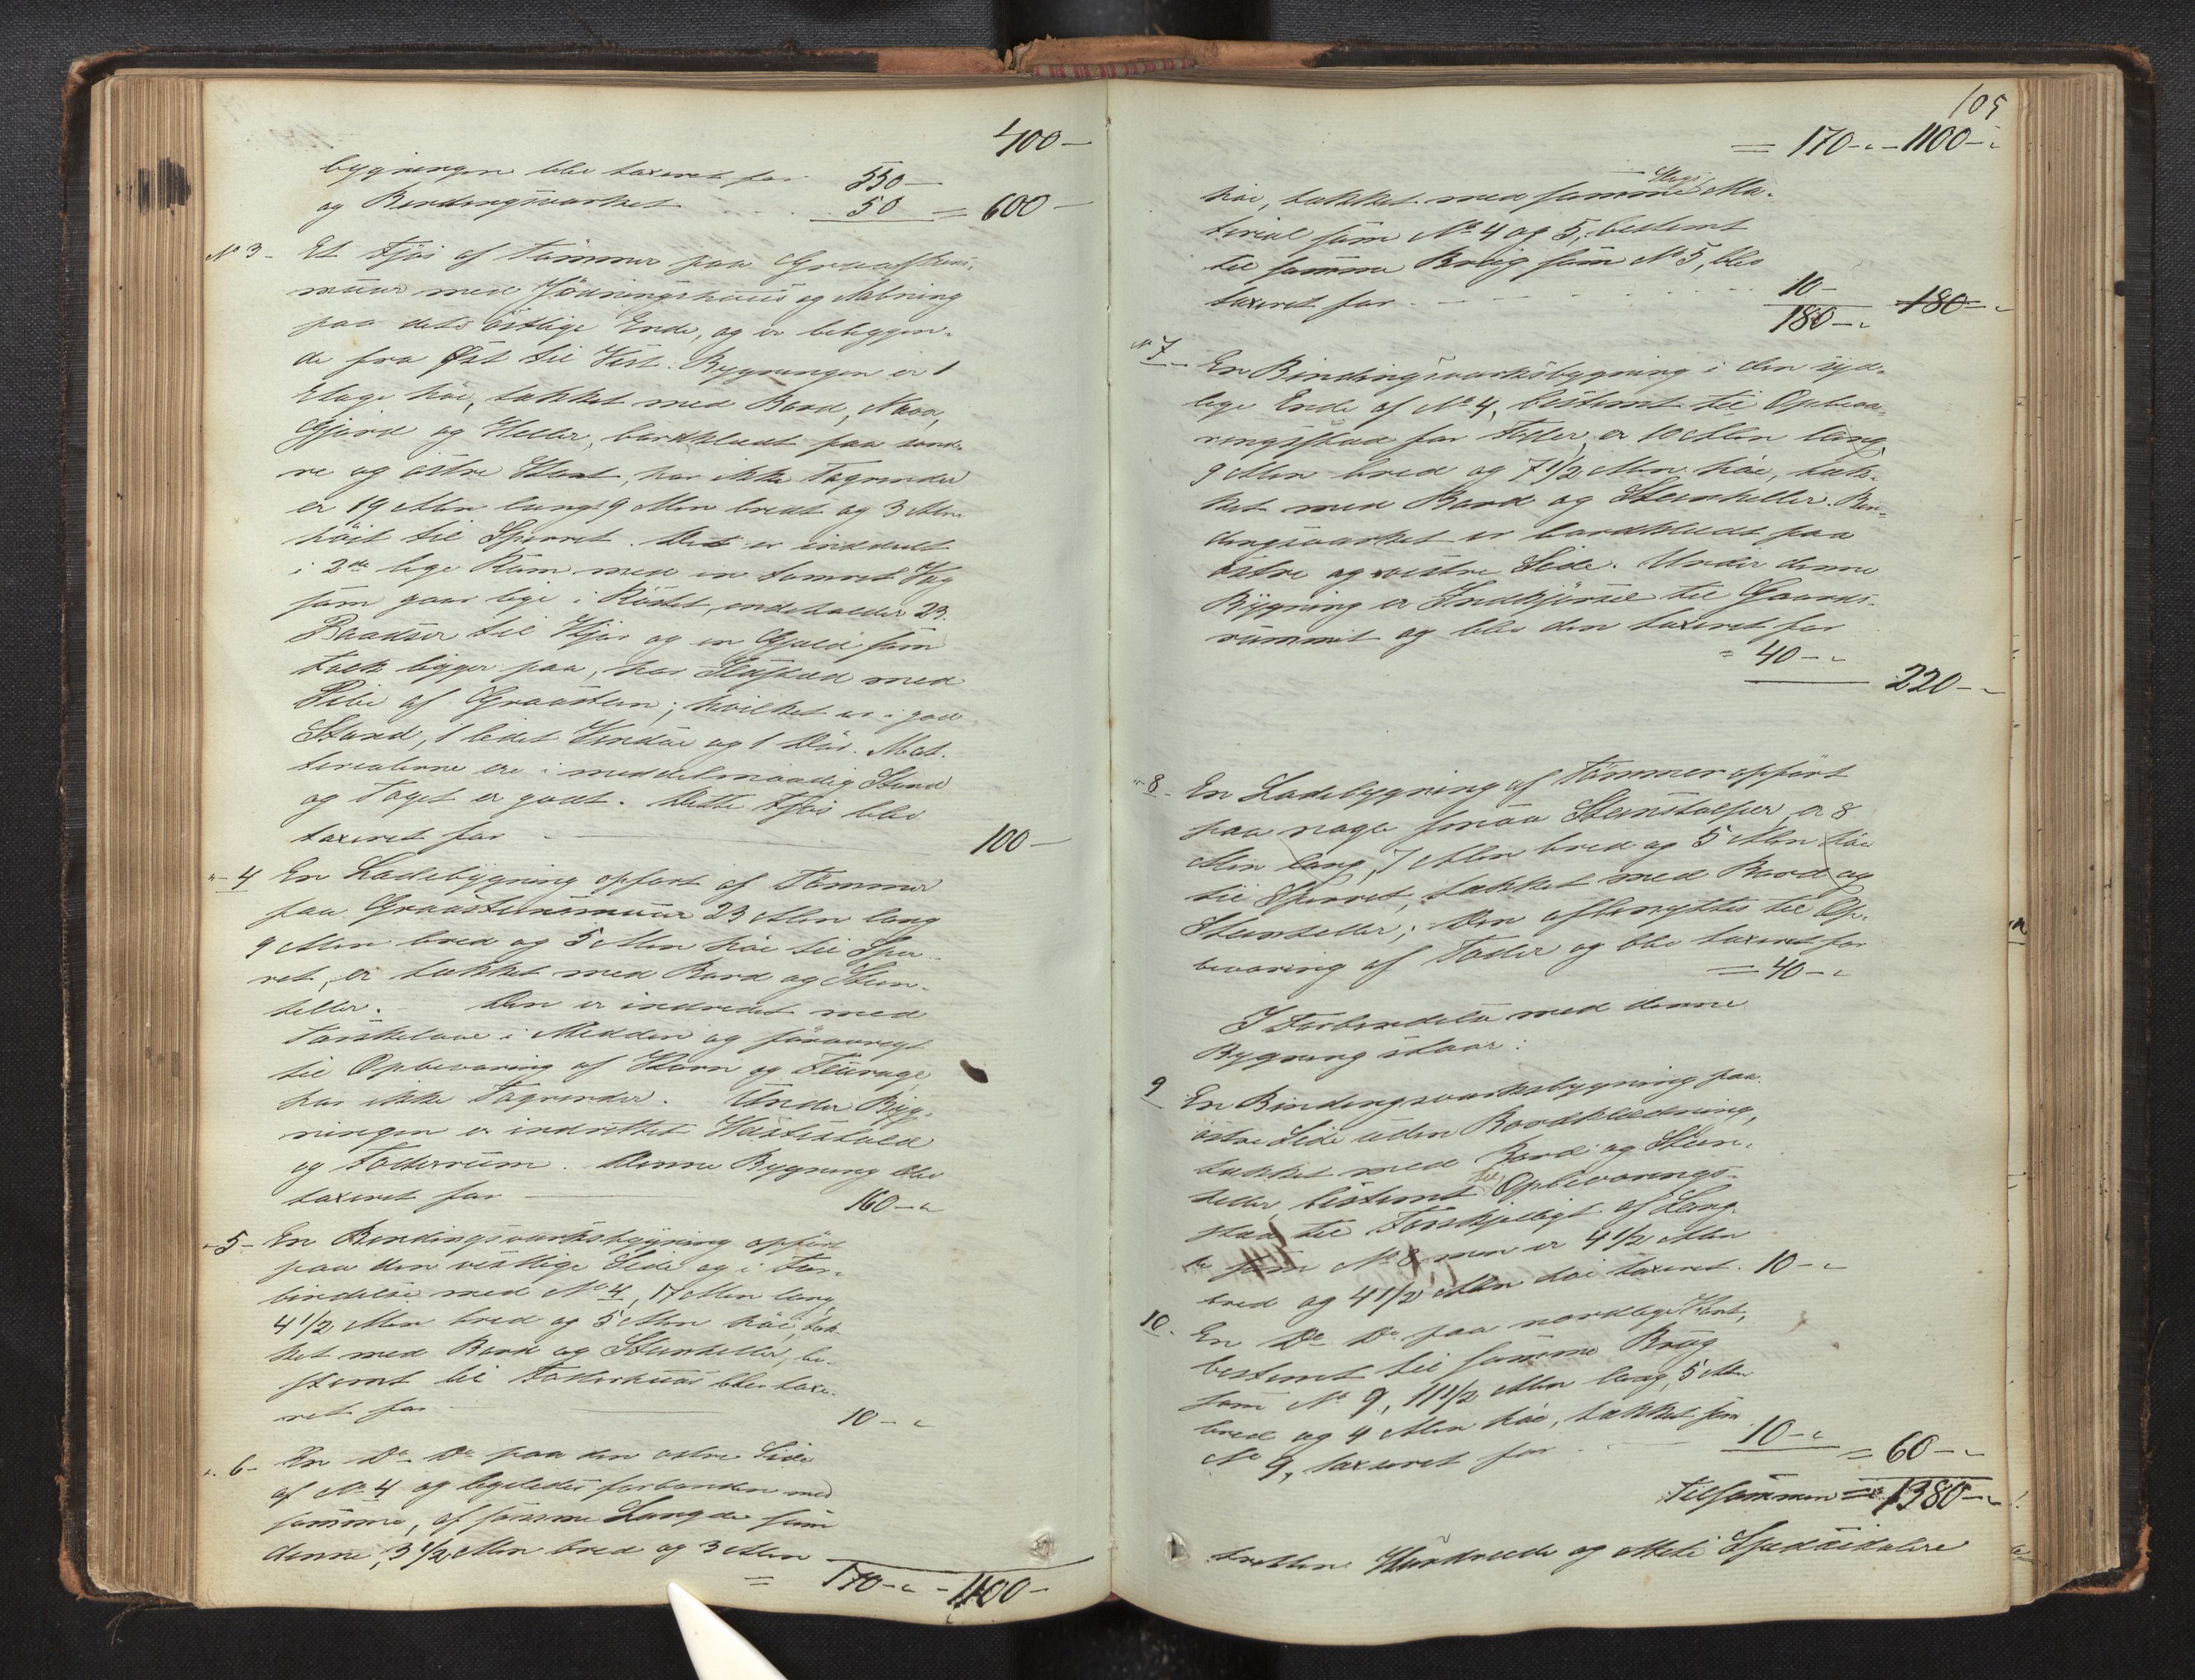 400 —
bygningen blev taxeret for 550 —
og Bindingsværket 50 = 600 —
No 3 - Et Fjøs af Tømmer paa Graasteens-
muur med Gjødningshuus og Aabning
paa dets østlige Ende, og er beliggen-
de fra Øst til Vest. Bygningen er 1
Etage høi, tækket med Bord, Næver,
og Heller, bordklædt paa sønd-
re og østre Kant, har ikke Tagrender
er 19 Alen langt 9 Alen bredt og 3 Alen
høit til Sperret. Det er inddeelt
i 2de lige Rum med en tømret Væg
som gaar lige i Røstet, indeholder 23
Baadser til Kjør og en som
Folk ligger paa, har Ildsted med
Pibe af Graasteen; hvilket er i god
Stand, 1 lidet Vindue og 1 Dør. Mat-
terialerne ere i middelmaadig Stand
og Taget er godt. Dette Fjøs blev
taxeret for 100 —
" 4 En Ladebygning opført af Tømmer
paa Graasteensmuur 23 Alen lang
9 Alen bred og 5 Alen høi til Sper-
ret, er tækket med Bord og Steen-
heller. Den er indredet med
Tærskelaave i Midden og forøvrigt
til Opbevaring af Korn og Fourage,
har ikke Tagrender. Under Byg-
ningen er indrettet Hestestald
og Foderrum. Denne Bygning blev
taxeret for 160 - "
" 5 - En Bindingsværksbygning opført
paa den vestlige Side og i For-
bindelse med No 4, 17 Alen lang,
4 1/2 Alen bred og 5 Alen høi, tæk-
ket med Bord og Steenheller, be-
stemt til Foderhuus blev taxe-
ret for 10 - "
" 6 - En Do Do paa den østre Side
af No 4 og ligeledes forbunden med
samme, af samme Længde som
denne, 3 1/2 Alen bred og 3 Alen
= 170 - " - 1100 -
105
= 170 - " - 1100 - "
høi, tækket med samme Slags Ma-
terial som No 4 og 5, bestemt
til samme Brug som No 5, blev
taxeret for 10 -
180 - " 180 - "
No 7 En Bindingsværksbygning i den syd-
lige Ende af No 4, bestemt til Opbeva-
ringssted for Foder, er 10 Alen lang
9 Alen bred og 7 1/2 Alen høi, tæk-
ket med Bord og Steenheller. Bin-
dingsværket er bordklædt paa
østre og vestre Side. Under denne
Bygning er Indkjørsel til Gaards-
rummet og blev den taxeret for
= 40 - "
220 - "
" 8 - En Ladebygning af Tømmer opført
paa nogle smaa Steenstolper, er 8
Alen lang, 7 Alen bred og 5 Alen høi
til Sperret, tækket med Bord og
Steenheller; Den afbenyttes til Op-
bevaring af Foder og blev taxeret for
= 40 - "
I Forbindelse med denne
Bygning staar:
9 En Bindingsværksbygning paa
østre Side uden Bordklædning,
tækket med Bord og Steen-
heller, bestemt til Opbevarings-
sted til Forskjelligt af Læng-
de som No 8 men er 4 1/2 Alen
bred og 4 1/2 Alen høi taxeret. 10 - "
10. En Do Do paa nordlige Kant,
bestemt til samme Brug
som No 9, 11 1/2 Alen lang, 5 Alen
bred og 4 Alen høi, tækket som
No 9, taxeret for 10 - " = 60 - "
Tilsammen = 1380 - "
tretten Hundrede og otteti Speciedalere